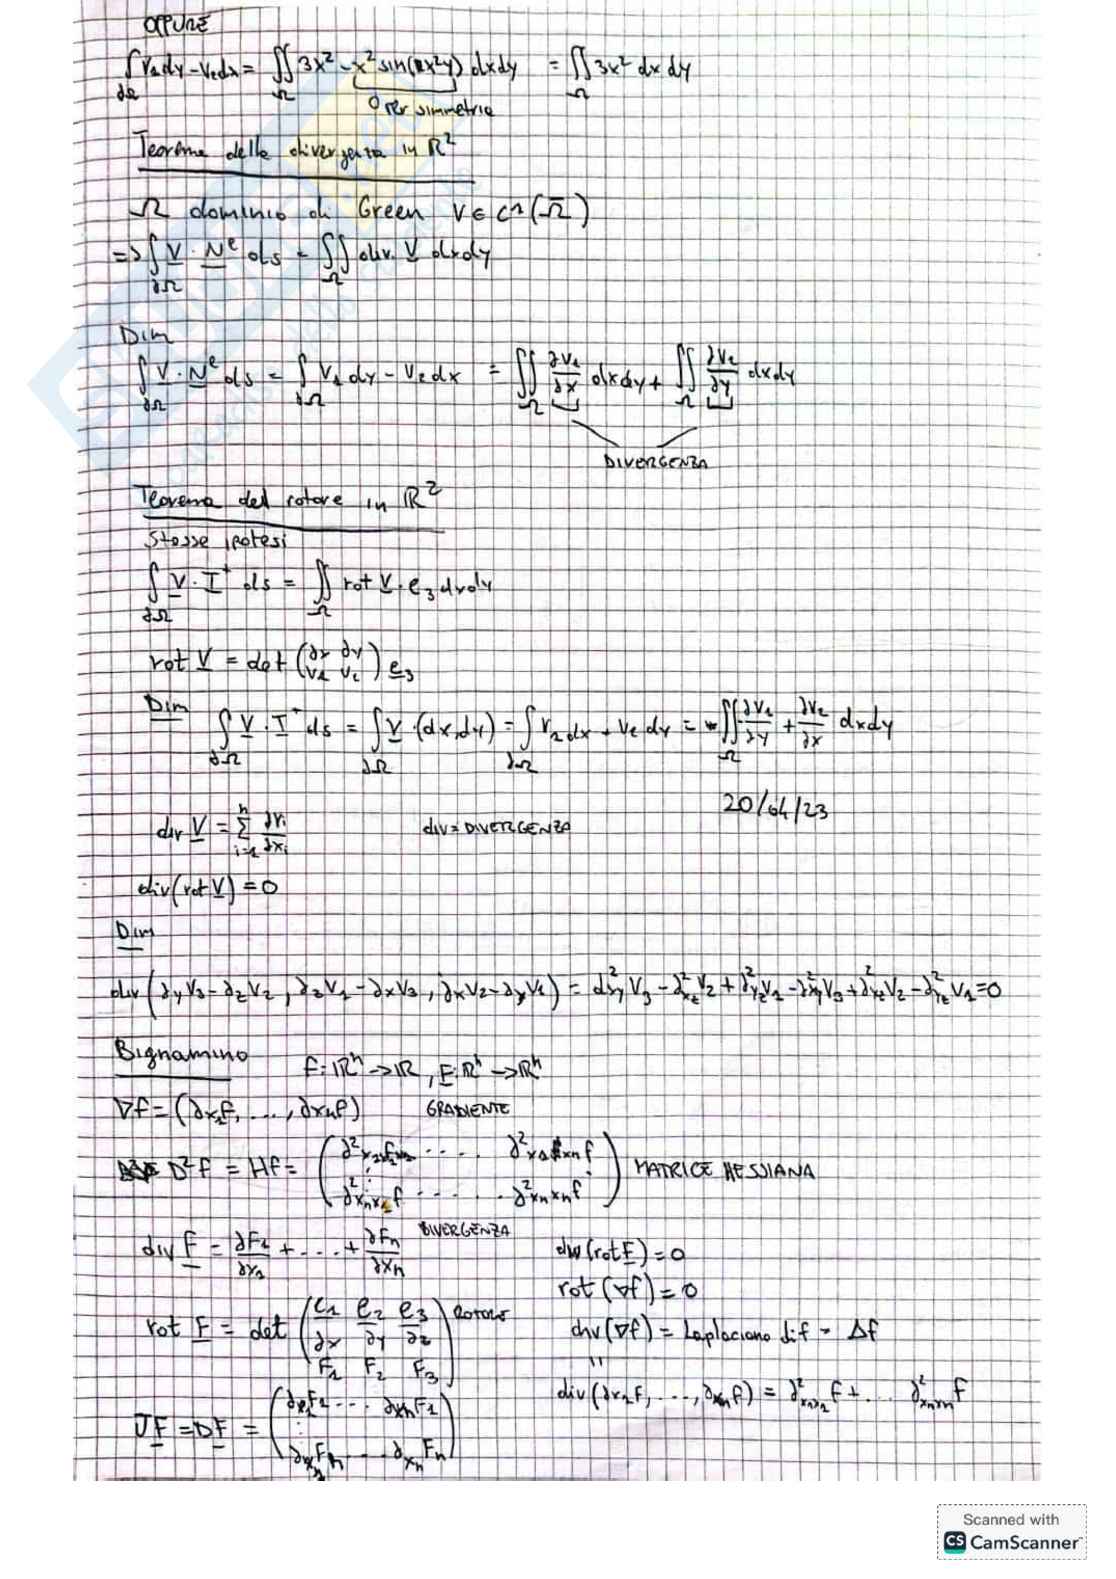 OPPURE
∫_∂Ω V₁dy - V₂dx = ∬_Ω 3x² - x² sin(2x²y) dxdy = ∬_Ω 3x² dx dy
0 per simmetria
Teorema della divergenza in R²
Ω dominio di Green V ∈ C^1(Ω̄)
=> ∫_∂Ω V · N^e ds = ∬_Ω div. V dxdy
Dim
∫_∂Ω V · N^e ds = ∫_∂Ω V₁ dy - V₂ dx = ∬_Ω ∂V₁/∂x dxdy + ∬_Ω ∂V₂/∂y dxdy
DIVERGENZA
Teorema del rotore in R²
Stesse ipotesi
∫_∂Ω V · T^+ ds = ∬_Ω rot V · e₃ dxdy
rot V = det (∂x ∂y V₁ V₂) e₃
Dim ∫_∂Ω V · T^+ ds = ∫_∂Ω V · (dx, dy) = ∫_∂Ω V₁ dx + V₂ dy = ∬_Ω -∂V₁/∂y + ∂V₂/∂x dxdy
20/04/23
div V = Σ_{i=1}^n ∂Vi/∂xi div = DIVERGENZA
div(rot V) = 0
Dim
div(∂yV₃ - ∂zV₂, ∂zV₁ - ∂xV₃, ∂xV₂ - ∂yV₁) = ∂²xyV₃ - ∂²xzV₂ + ∂²yzV₁ - ∂²xyV₃ + ∂²xzV₂ - ∂²yzV₁ = 0
Bignamino f: R^n -> R, F: R^n -> R^n
∇f = (∂x₁f, ..., ∂xnf) GRADIENTE
D²f = Hf = (∂²x₁x₁f .... ∂²x₁xnf ⋮ ∂²xnx₁f ..... ∂²xnxnf) MATRICE HESSIANA
div F = ∂F₁/∂x₁ + ... + ∂Fn/∂xn DIVERGENZA
div(rot F) = 0
rot(∇f) = 0
rot F = det (e₁ e₂ e₃ ∂x ∂y ∂z F₁ F₂ F₃) ROTORE
div(∇f) = Laplaciano di f = Δf
"
div(∂x₁f, ..., ∂xnf) = ∂²x₁x₁f + ... ∂²xnxnf
JF = DF = (∂x₁F₁ ... ∂xnF₁ ⋮ ∂x₁Fn ... ∂xnFn)
Scanned with
CS CamScanner